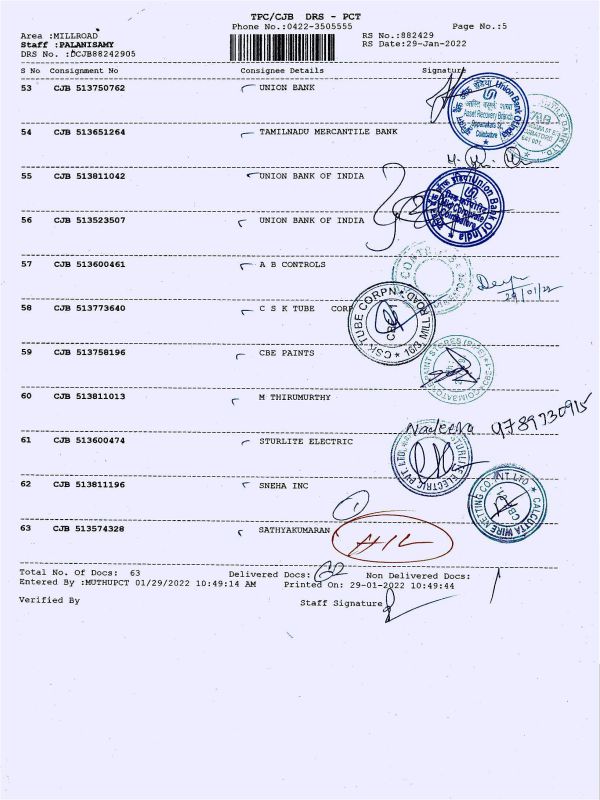 TPC/CJB DRS - PCT
Phone No.:0422-3505555
Page No.:5
Area :MILLROAD
RS No.:882429
Staff :PALANISAMY
RS Date:29-Jan-2022
DRS No. :DCJB88242905
S No Consignment No Consignee Details Signature
53 CJB 513750762 UNION BANK
Union Bank of India
Asset Recovery Branch
Coimbatore
54 CJB 513651264 TAMILNADU MERCANTILE BANK
55 CJB 513811042 UNION BANK OF INDIA
Union Bank of India
56 CJB 513523507 UNION BANK OF INDIA
57 CJB 513600461 A B CONTROLS
29/01/22
58 CJB 513773640 C S K TUBE CORP
CSK TUBE CORPN ★ 16/3, MILL ROAD
59 CJB 513758196 CBE PAINTS
60 CJB 513811013 M THIRUMURTHY
Nadeena 9789730915
61 CJB 513600474 STURLITE ELECTRIC
STURLITE ELECTRIC PVT LTD
62 CJB 513811196 SNEHA INC
CALCUTTA WIRE NETTING CO. PVT. LTD
63 CJB 513574328 SATHYAKUMARAN
Total No. Of Docs: 63 Delivered Docs: Non Delivered Docs:
Entered By :MUTHUPCT 01/29/2022 10:49:14 AM Printed On: 29-01-2022 10:49:44
Verified By Staff Signature